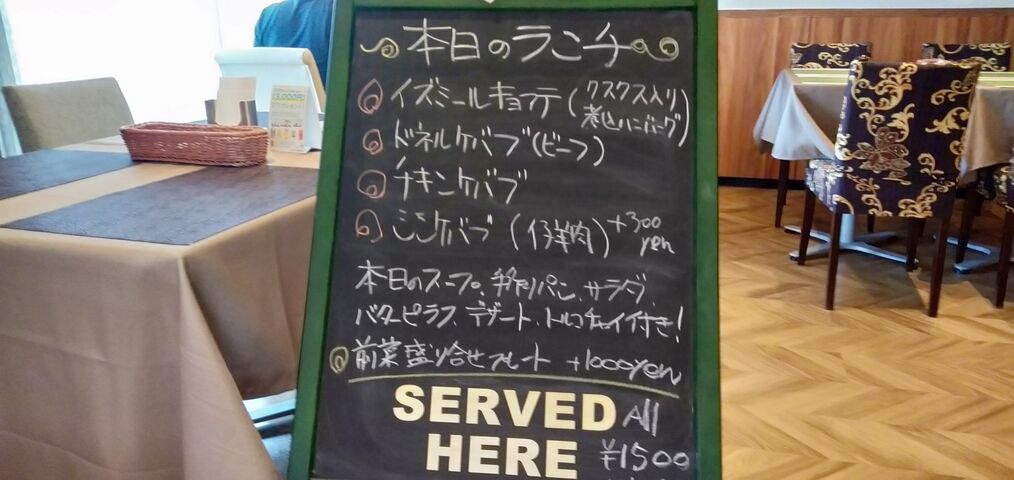 本日のランチ
イズミールキョフテ(クスクス入り
煮込ハンバーグ)
ドネルケバブ(ビーフ)
チキンケバブ
シシケバブ(仔羊肉)+300
yen
本日のスープ、手作りパン、サラダ、
バターピラフ、デザート、トルコチャイ付き!
前菜盛り合せプレート +1000yen
SERVED All
HERE ¥1500